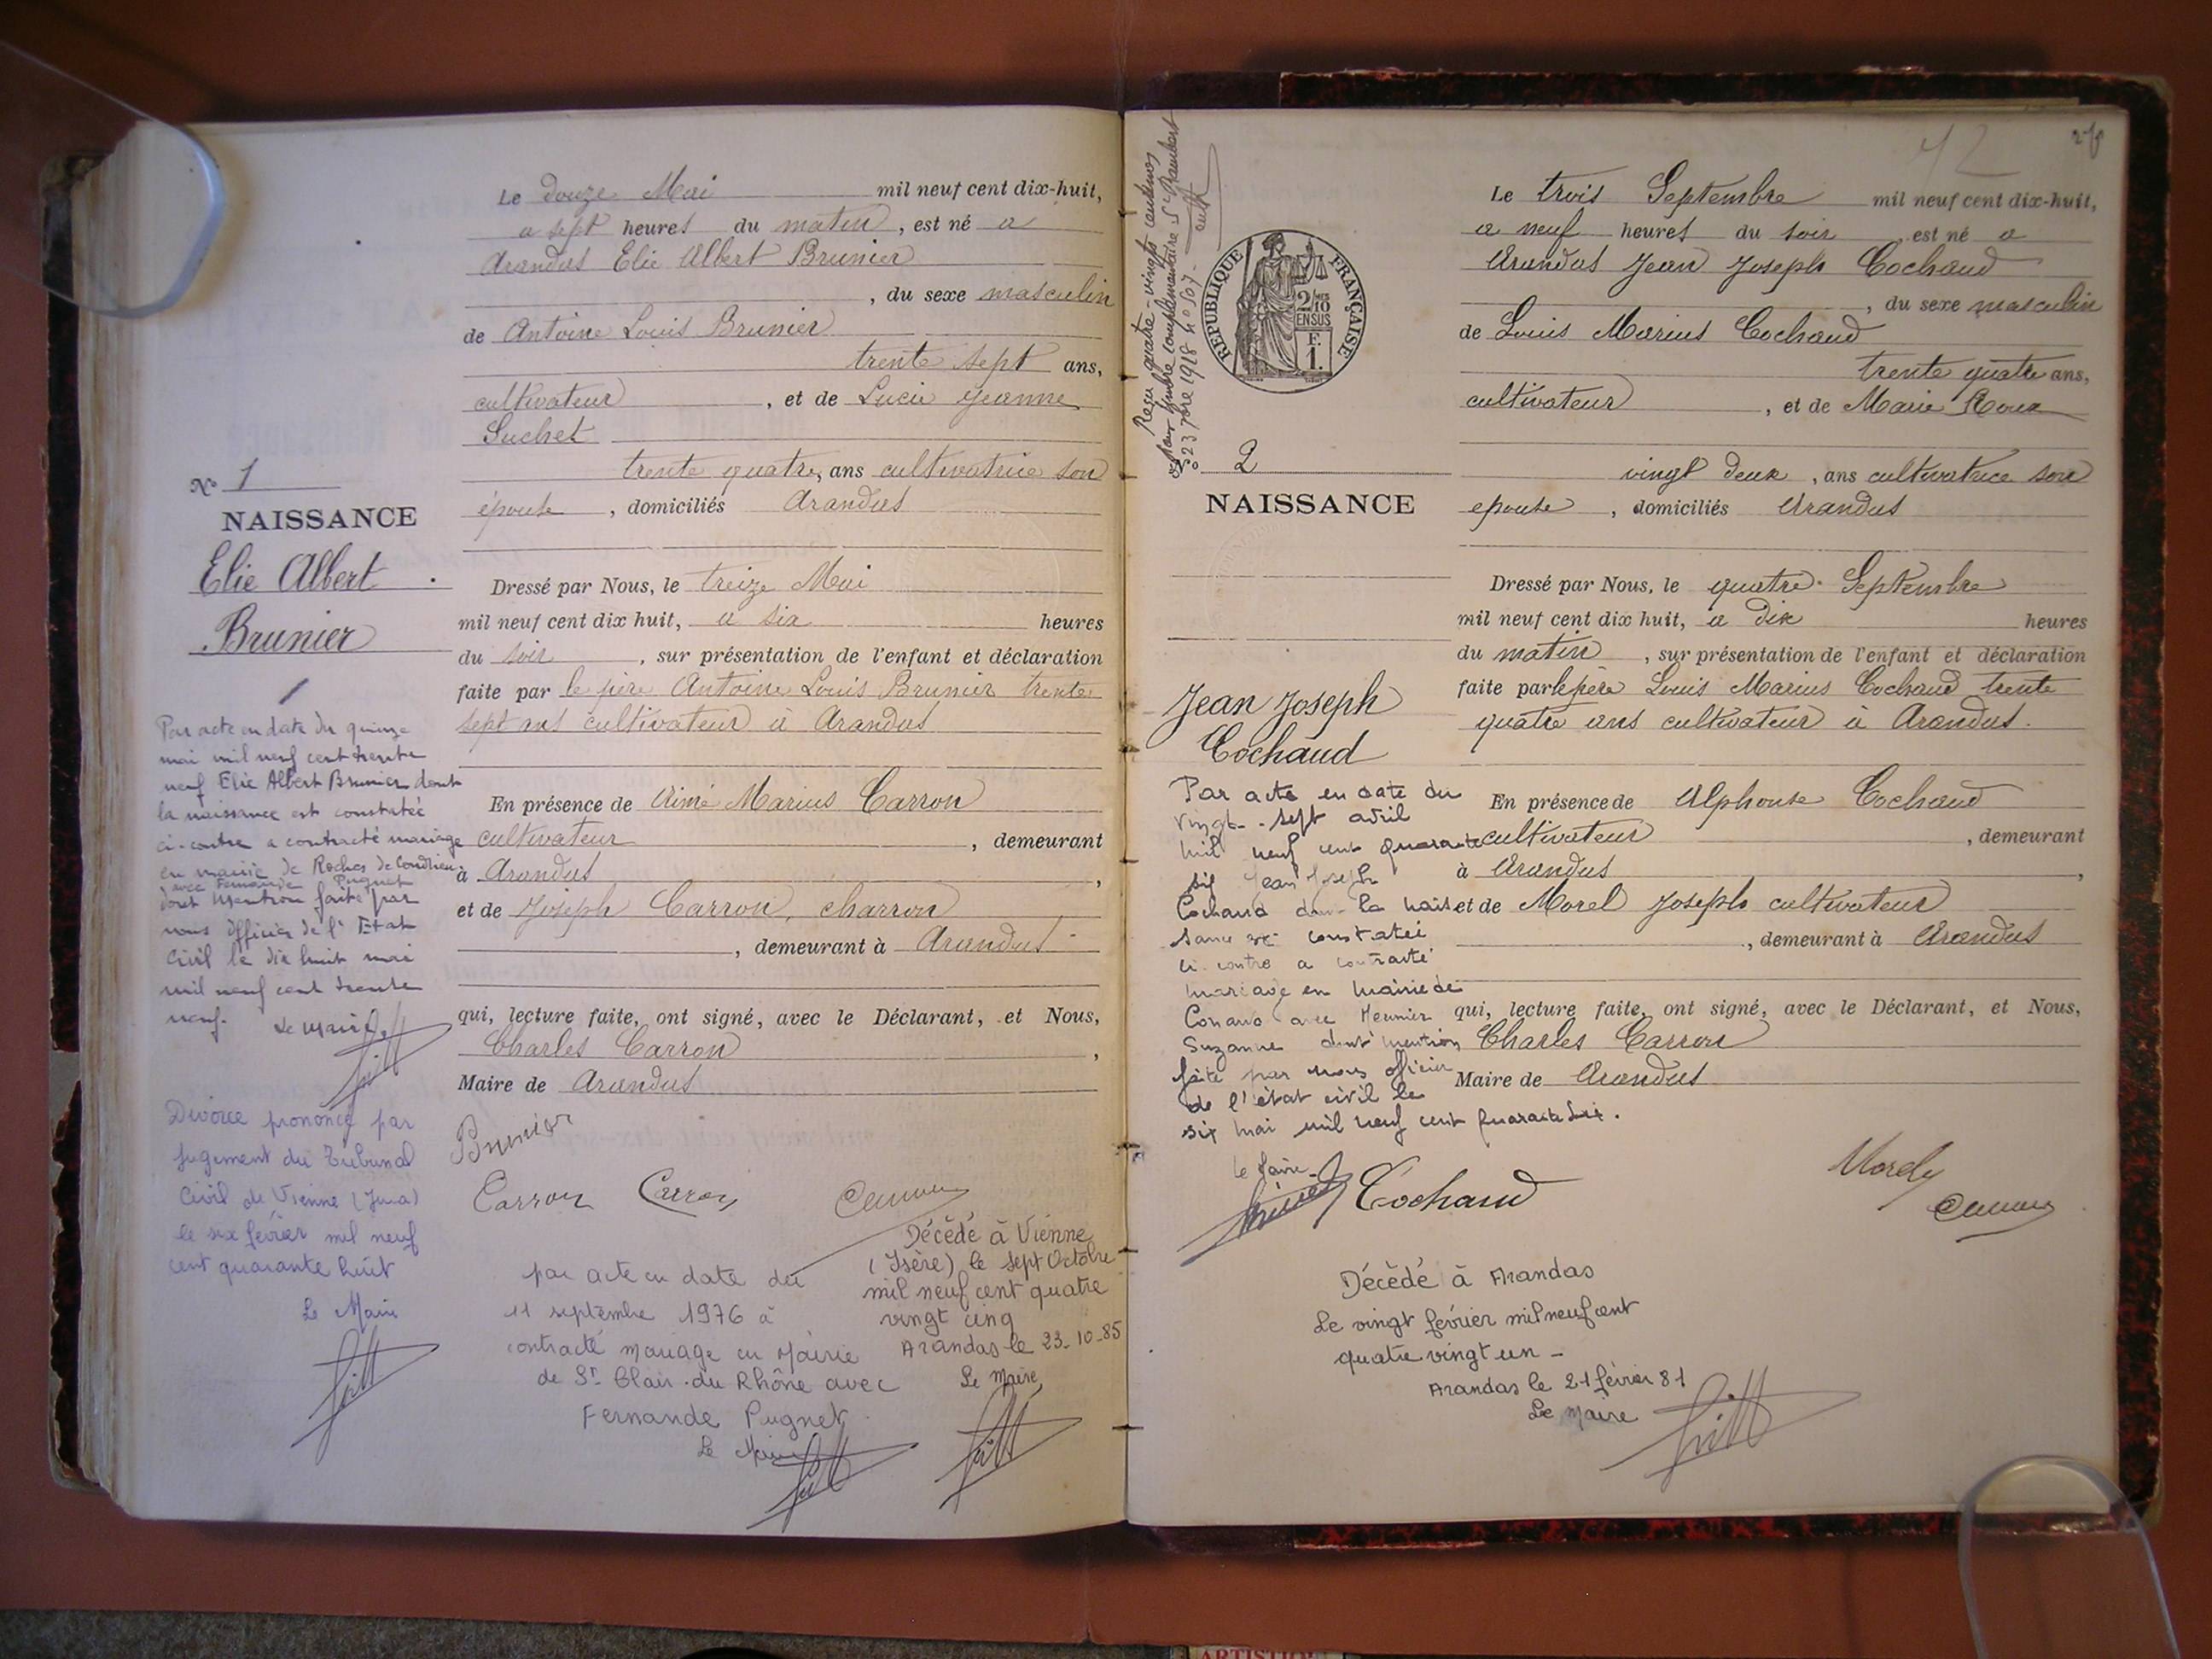 Le douze Mai mil neuf cent dix-huit,
a sept heures du matin, est né a
Arandas Elie Albert Brunier
, du sexe masculin
de Antoine Louis Brunier
trente sept ans,
cultivateur, et de Lucie Jeanne
Suchet
trente quatre, ans cultivatrice son
épouse, domiciliés Arandas
N° 1
NAISSANCE
Elie Albert
Brunier
Dressé par Nous, le treize Mai
mil neuf cent dix huit, a six heures
du soir, sur présentation de l'enfant et déclaration
faite par le père Antoine Louis Brunier trente
sept ans cultivateur à Arandas
En présence de Aimé Marius Carron
cultivateur, demeurant
à Arandas,
et de Joseph Carron, charron
, demeurant à Arandas
qui, lecture faite, ont signé, avec le Déclarant, et Nous,
Charles Carron,
Maire de Arandas
Brunier
Carron Carron
Par acte en date du quinze
mai mil neuf cent trente
neuf Elie Albert Brunier dont
la naissance est constatée
ci-contre a contracté mariage
en mairie de Roches de Condrieu
avec Fernande Pugnet
dont mention faite par
nous officier de l'Etat
Civil le dix huit mai
mil neuf cent trente
neuf. Le Maire
Divorce prononcé par
jugement du Tribunal
Civil de Vienne
le six février mil neuf
cent quarante huit
Le Maire
par acte en date du
11 septembre 1976 à
contracté mariage en Mairie
de St Clair du Rhône avec
Fernande Pugnet
Le Maire
Décédé à Vienne
(Isère) le sept Octobre
mil neuf cent quatre
vingt cinq
Arandas le 23-10-85
Le Maire
42
Reçu quatre-vingts centimes
pour timbre complémentaire St Rambert
23 7bre 1918 n° 507
REPUBLIQUE FRANÇAISE
2/10 MES
EN SUS
F.
1.
Le trois Septembre mil neuf cent dix-huit,
a neuf heures du soir, est né a
Arandas Jean Joseph Cochaud
, du sexe masculin
de Louis Marius Cochaud
trente quatre ans,
cultivateur, et de Marie Roux
vingt deux, ans cultivatrice son
epouse, domiciliés Arandas
N° 2
NAISSANCE
Jean Joseph
Cochaud
Dressé par Nous, le quatre Septembre
mil neuf cent dix huit, a dix heures
du matin, sur présentation de l'enfant et déclaration
faite par le père Louis Marius Cochaud trente
quatre ans cultivateur à Arandas.
En présence de Alphonse Cochaud
cultivateur, demeurant
à Arandas,
et de Morel Joseph cultivateur
, demeurant à Arandas
qui, lecture faite, ont signé, avec le Déclarant, et Nous,
Charles Carron
Maire de Arandas
Par acte en date du
vingt-sept avril
mil neuf cent quarante
six Jean Joseph
Cochaud dont la nais
sance est constatée
ci-contre a contracté
mariage en mairie de
Conand avec Meunier
Suzanne dont mention
faite par nous officier
de l'état civil le
six mai mil neuf cent quarante six.
le Maire
Cochaud
Morel
Décédé à Arandas
Le vingt février mil neuf cent
quatre vingt un -
Arandas le 21 février 81
Le Maire
ARTISTIQUE